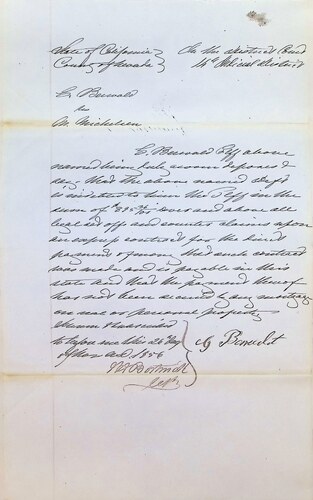 State of California
County of Nevada
In the District Court
14th Judicial District
E. Berwald
vs
M. Michelsen
E. Berwald Plff above
named being duly sworn deposes &
says that the above named deft
is indebted to him the Plff in the
sum of over and above all
legal set offs and counter claims upon
an express contract for the direct
payment of money that such contract
was made and is payable in this
state and that the payment thereof
has not been secured by any mortgage
on real or personal property
Sworn & subscribed
to before me this 26 day
of AD 1856